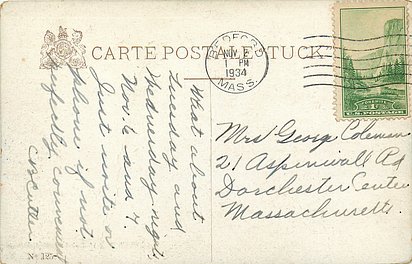 CARTE POSTALE
TUCK
BEDFORD
NOV 2
1 PM
1934
MASS.
YOSEMITE
1¢
U.S. POSTAGE
What about
Tuesday and
Wednesday night,
Nov. 6 and 7.
Just write or
phone if not
perfectly convenient
Mrs George Coleman
21 Aspinwall Rd
Dorchester Center
Massachusetts.